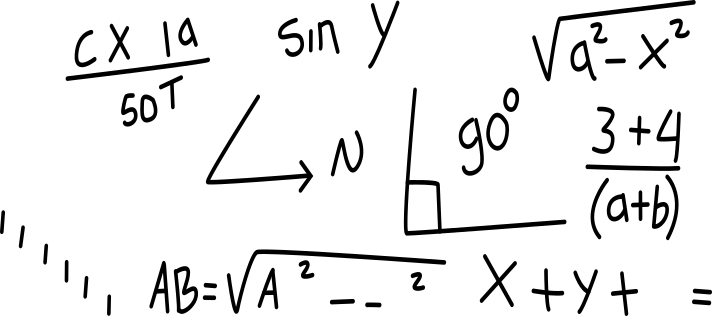 C X 1a
50T
sin y
√a²-x²
N
90°
3+4
(a+b)
AB=√A² -- ²
X+y+ =